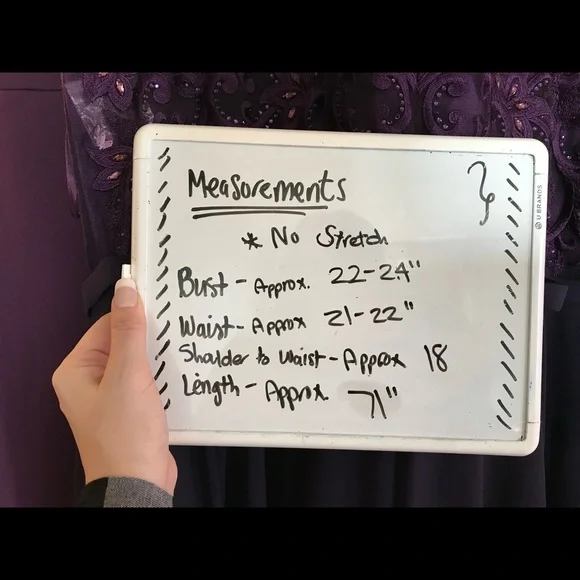 Measurements
* No Stretch
Bust - Approx. 22-24"
Waist - Approx 21-22"
Shoulder to Waist - Approx 18
Length - Approx. 71"
U BRANDS